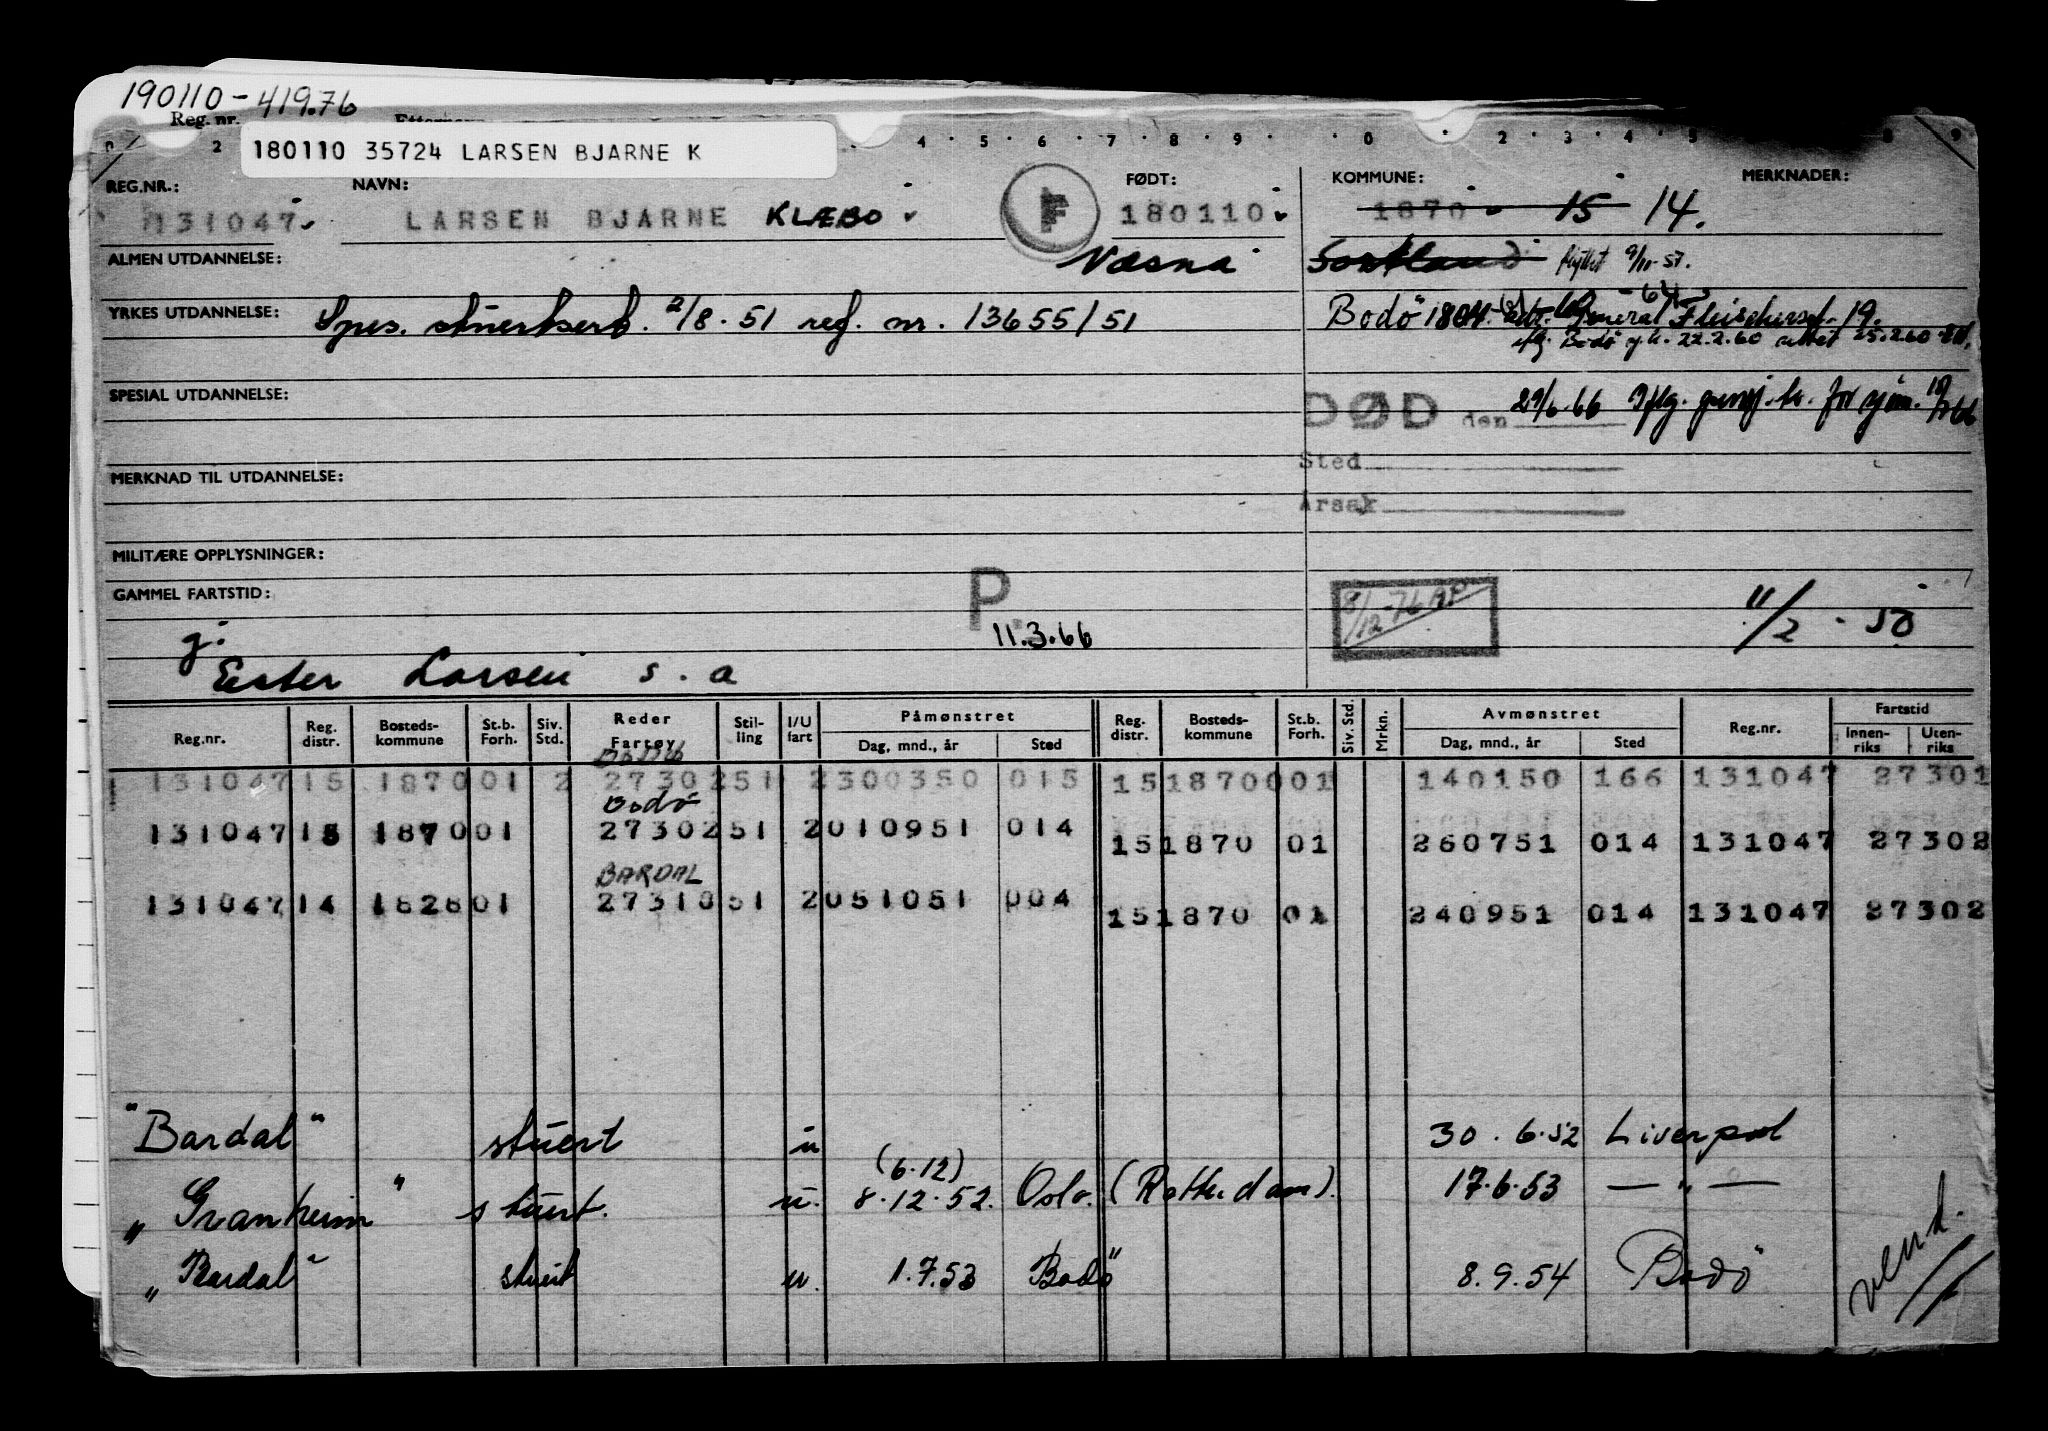 190110-41976
Reg. nr.
180110 35724 LARSEN BJARNE K
2 4 5 6 7 8 9 0 2 3 4 5 8 9
REG.NR.: NAVN: FØDT: KOMMUNE: MERKNADER:
131047 LARSEN BJARNE KLÆBO F 180110 1870 15 14.
ALMEN UTDANNELSE: Væsna Sortland flyttet 9/11-57.
YRKES UTDANNELSE: Spes. stuertsert. 2/8.51 reg. nr. 13655/51 Bodö 1804. General Fleischersgt. 19.
Bodö 22.2.60 25.2.60
SPESIAL UTDANNELSE: DØD den 29/6.66 Iflg. for sjøm.
Sted
MERKNAD TIL UTDANNELSE:
Årsak
MILITÆRE OPPLYSNINGER:
GAMMEL FARTSTID: P 8/12-76 11/2-50
g. 11.3.66
Ester Larsen s.a
Reg.nr. Reg. distr. Bosteds-kommune St.b. Forh. Siv. Std. Reder Fartøy Stil-ling I/U fart Påmønstret Dag, mnd., år Sted Reg. distr. Bosteds-kommune St.b. Forh. Siv. Std. Mrkn. Avmønstret Dag, mnd., år Sted Reg.nr. Fartstid Innen-riks Uten-riks
131047 15 1870 01 2 27302 51 2 300350 015 15 1870 001 140150 166 131047 27301
Bodö
131047 15 1870 01 27302 51 2 010951 014 15 1870 01 260751 014 131047 27302
BARDAL
131047 14 1828 01 27310 51 2 051051 004 15 1870 01 240951 014 131047 27302
"Bardal" stuert u 30.6.52 Liverpool
(6.12)
"Granheim" stuert. u. 8.12.52. Oslo. (Rotterdam). 17.6.53 — " —
"Bardal" stuert u. 1.7.53 Bodö 8.9.54 Bodö
vend.